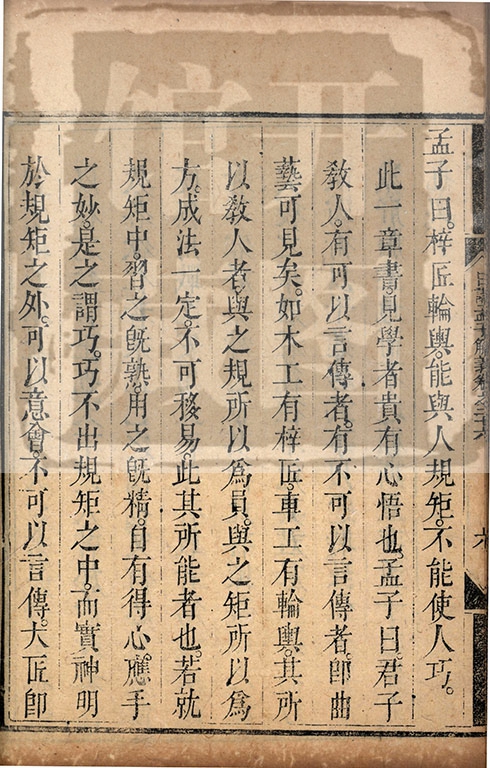 孟子曰。梓匠輪輿。能與人規矩。不能使人巧。
此一章書見學者貴有心悟也。孟子曰君子
教人。有可以言傳者。有不可以言傳者。卽曲
藝可見矣。如木工有梓匠。車工有輪輿。其所
以教人者。與之規所以爲員。與之矩所以爲
方。成法一定。不可移易。此其所能者也。若就
規矩中。習之旣熟。用之旣精。自有得心應手
之妙。是之謂巧。巧不出規矩之中。而實神明
於規矩之外。可以意會。不可以言傳。大匠卽